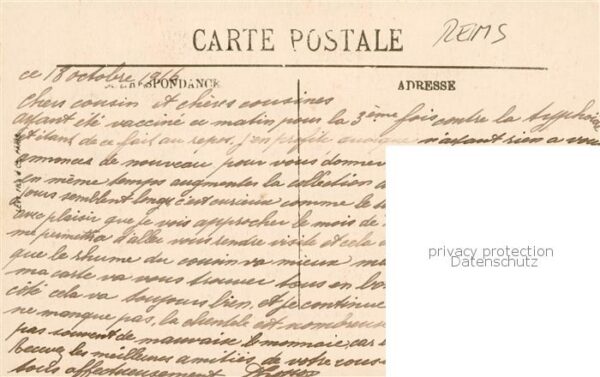 REIMS
CARTE POSTALE
ce 18 octobre 1916
CORRESPONDANCE
ADRESSE
Chers cousin et chères cousines
ayant été vacciné ce matin pour la 3ème fois contre la typhoïde
et étant de ce fait au repos, j'en profite quoique n'ayant rien a vous
annoncer de nouveau pour vous donner
en même temps augmenter la collection
jours semblent longs c'est curieux comme le
avec plaisir que je vois approcher le mois de
me permettra d'aller vous rendre visite et cela
que le rhume du cousin va mieux
ma carte va vous trouver tous en
côté cela va toujours bien, et je continue
ne manque pas, la clientèle est nombreuse
pas souvent de mauvaise monnaie, car
Recevez les meilleures amitiés de votre cousin
tous affectueusement
privacy protection
Datenschutz